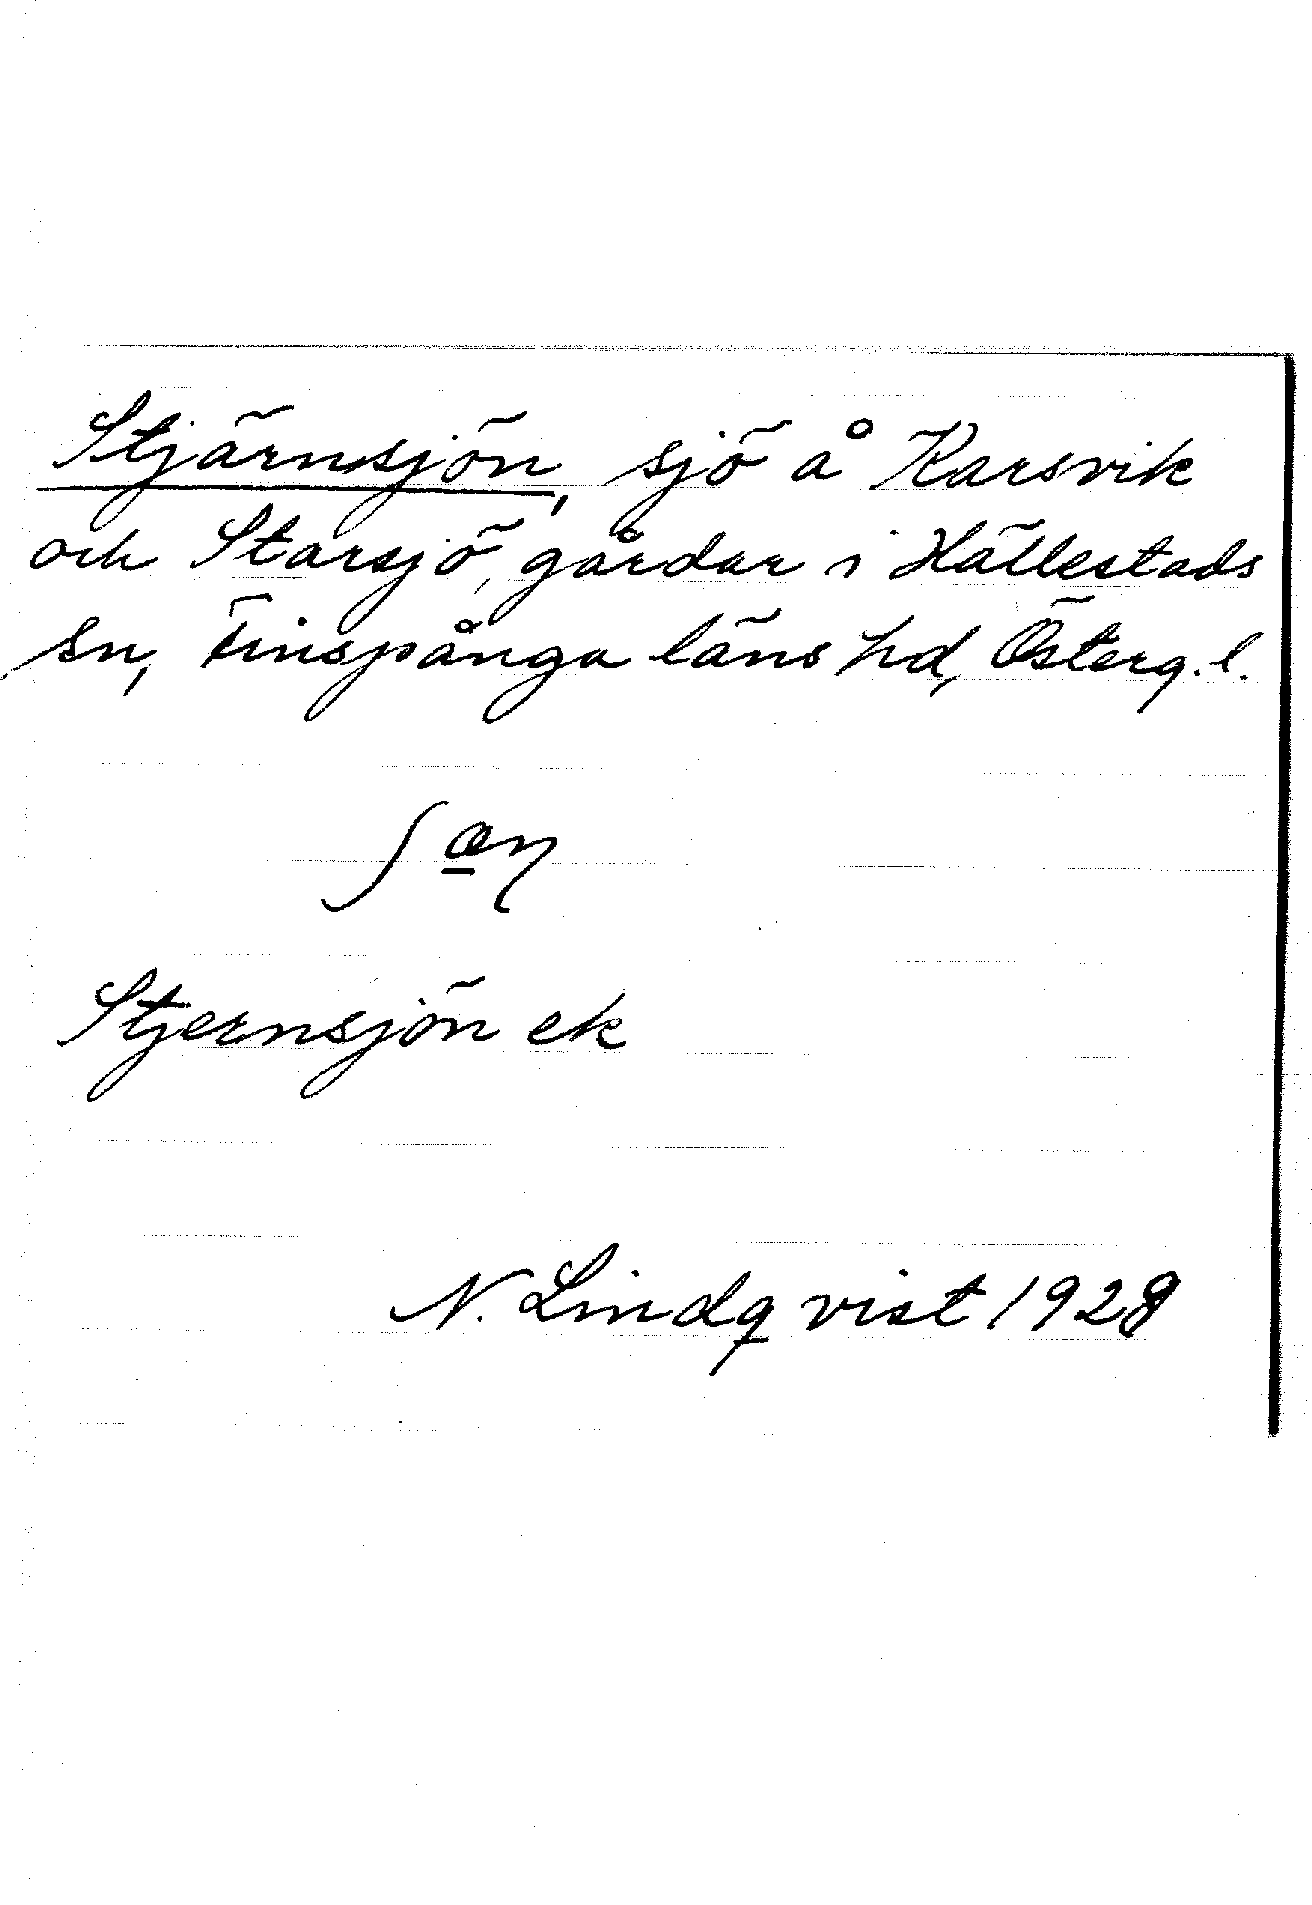 Stjärnsjön, sjö å Karsvik
och Starsjö, gårdar i Hällestads
sn, Finspånga läns hd, Österg. l.
ʃæ̱ɳ
Stjernsjön ek
N. Lindqvist 1928